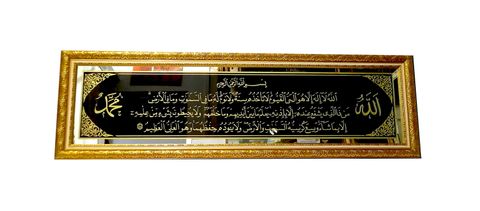 بسم الله الرحمن الرحيم
الله
الله لا إله إلا هو الحي القيوم لا تأخذه سنة ولا نوم له ما في السموت وما في الأرض
من ذا الذي يشفع عنده إلا بإذنه يعلم ما بين أيديهم وما خلفهم ولا يحيطون بشيء من علمه
إلا بما شاء وسع كرسيه السموت والأرض ولا يئوده حفظهما وهو العلي العظيم
محمد